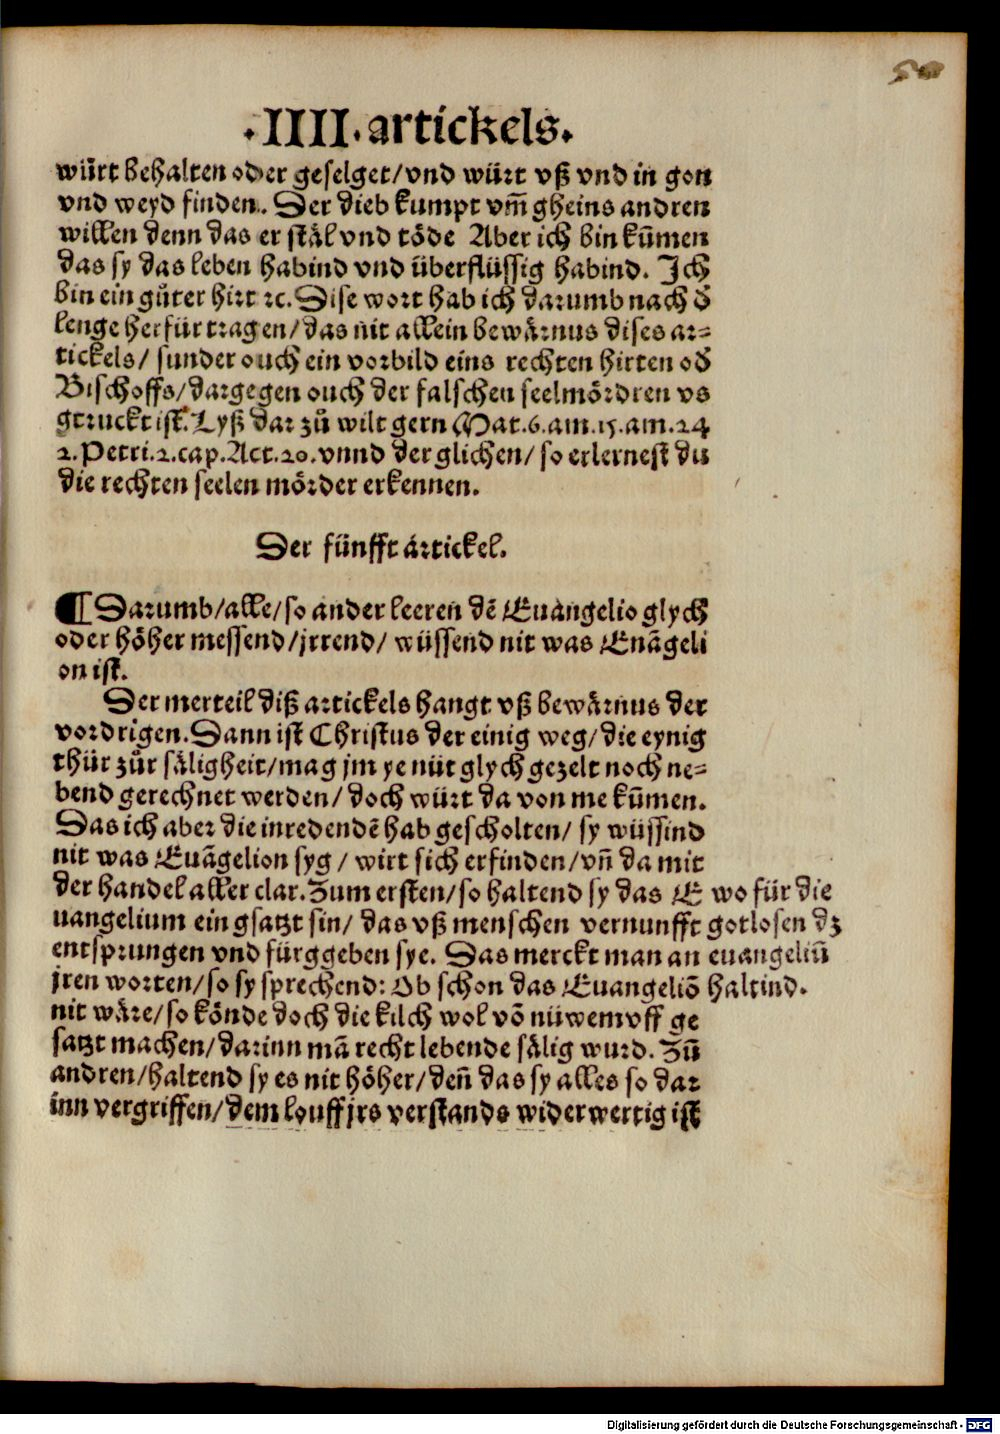 .IIII. artickels.
würt behalten oder geselget/vnd würt vß vnd in gon
vnd weyd finden.. Der dieb kumpt vm̄ gheins andren
willen denn das er stäl vnd töde Aber ich bin kūmen
das sy das leben habind vnd überflüssig habind. Jch
bin ein gůter hirt ꝛc. Dise wort hab ich darumb nach ð
lenge herfürtragen/das nit allein bewärnus dises ar-
tickels/ sunder ouch ein vorbild eins rechten hirten oð
Bischoffs/dargegen ouch der falschen seelmördren vs
gtruckt ist. Lyß dar zů wilt gern Mat.6.am.15.am.24
2.Petri.2.cap.Act.20.vnnd der glichen/ so erlernest du
die rechten seelen mörder erkennen.
Der fünfft artickel.
¶ Darumb/alle/so ander leeren dē Euangelio glych
oder höher messend/jrrend/ wüssend nit was Euāgeli
on ist.
Der merteil diß artickels hangt vß bewärnus der
vordrigen. Dann ist Christus der einig weg/die eynig
thür zůr säligheit/mag jm ye nüt glych gezelt noch ne-
bend gerechnet werden/ doch würt da von me kūmen.
Das ich aber die inredendē hab gescholten/ sy wüssind
nit was Euāgelion syg/ wirt sich erfinden/vn̄ da mit
der handel aller clar. Zum ersten/so haltend sy das E
uangelium ein gsatzt sin/ das vß menschen vernunfft
entsprungen vnd fürggeben sye. Das merckt man an
jren worten/so sy sprechend: Ob schon das Euangeliō
nit wäre/so könde doch die kilch wol vō nüwem vff ge
satzt machen/darinn mā recht lebende sälig wurd. Zū
andren/haltend sy es nit höher/den̄ das sy alles so dar
inn vergriffen/dem louff jrs verstands widerwertig ist
wo für die
gotlosen dz
euangeliū
haltind.
Digitalisierung gefördert durch die Deutsche Forschungsgemeinschaft - DFG